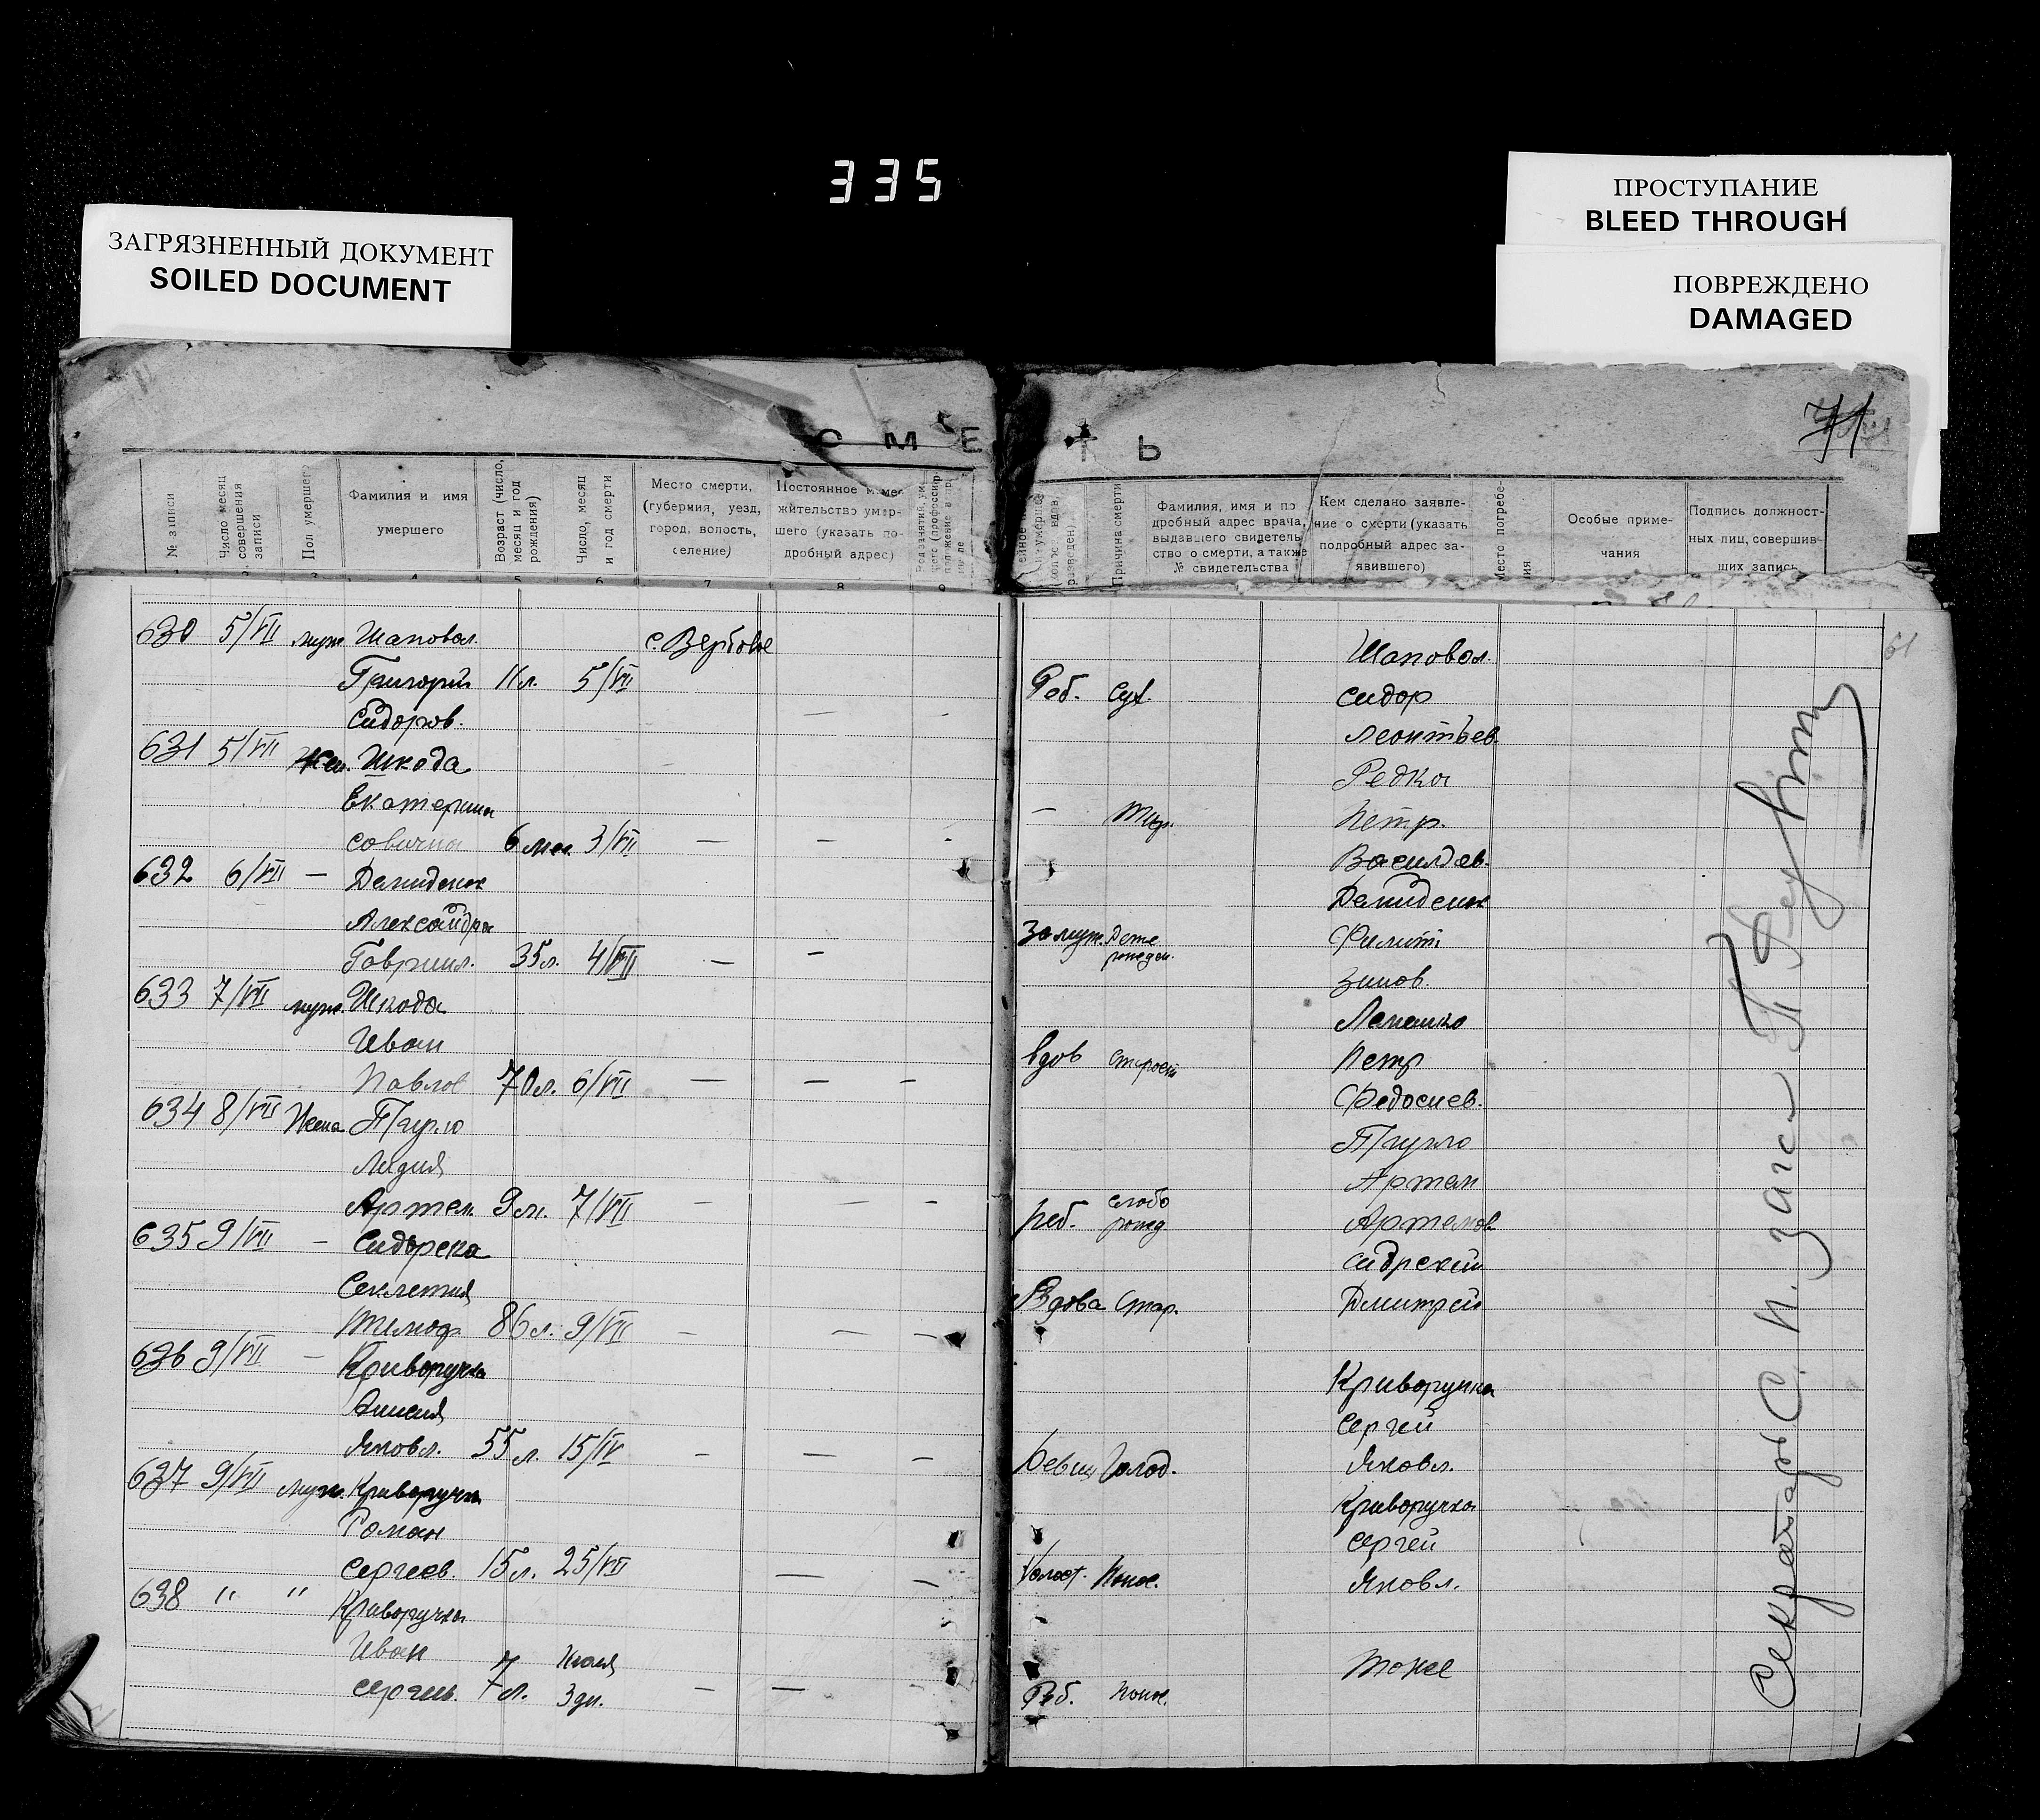 335
ЗАГРЯЗНЕННЫЙ ДОКУМЕНТ
SOILED DOCUMENT
ПРОСТУПАНИЕ
BLEED THROUGH
ПОВРЕЖДЕНО
DAMAGED
71
СМЕ ТЬ
№ записи
Число месяц совершения записи
Пол умершег
Фамилия и имя умершего
Возраст (число, месяц и год рождения)
Число, месяц и год смерти
Место смерти, (губерния, уезд, город, волость, селение)
Постоянное место жительство умершего (указать подробный адрес)
Причина смерти
Фамилия, имя и подробный адрес врача, выдавшего свидетельство о смерти, а также № свидетельства
Кем сделано заявление о смерти (указать подробный адрес заявившего)
Место погребения
Особые примечания
Подпись должностных лиц, совершивших запись
61
630 5/VII муж Шаповал. с. Вербовое Шаповал.
Григорий 11 л. 5/VII Реб. Сух. Сидор
Сидоров. — - Леонтьев.
631 5/VII Жен. Шкода Редка
Екатерина — Петр.
6 мес. 3/VII — — - Васильев.
632 6/VII — Демиденок Демиденок
Александра Замуж. Филип
Гаврил. 35 л. 4/VII — — Зинов.
633 7/VII муж. Шкода
Иван Вдов Старость Петр
Павлов 70 л. 6/VII — — — Федосиев.
634 8/VII Жена Пурло Пурло
Лидия Артем
Артем. 9 м. 7/VII — — — Реб. слабо рожд Артемов
635 9/VII — Сидорска
Секлетия Вдова Стар. Дмитрий
Тимоф. 86 л. 9/VII — — —
636 9/VII — Криворучка Криворучка
Анисия Сергей
Яковл. 55 л. 15/IV — — — Девиц Голод. Яковл.
637 9/VII муж. Криворучка Криворучка
Роман Сергей
Сергеев. 15 л. 25/VI — — Холост. Понос. Яковл.
638 " " Криворучка
Иван Июля Тоже
Сергеев. 7 л. 3 дн. — — Реб. Понос.
Секретарь С. П. Загс